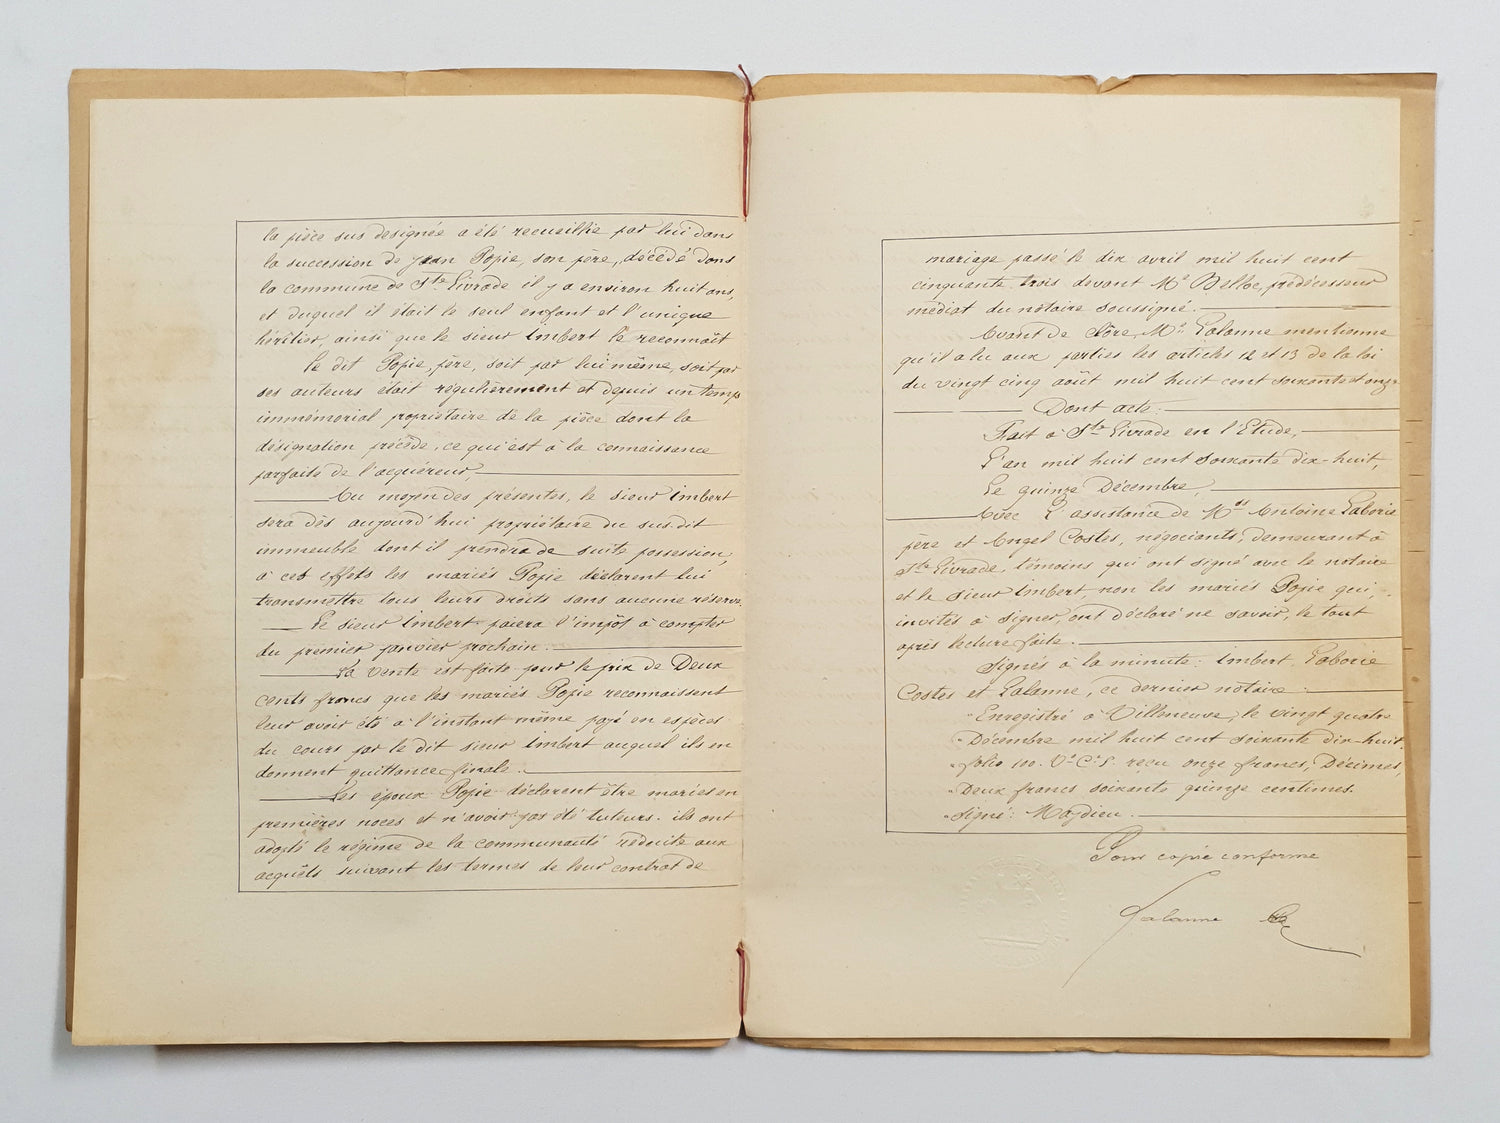 la pièce sus designée a été recueillie par lui dans
la succession de Jean Popie, son père, décédé dans
la commune de Ste Livrade il y a environ huit ans,
et duquel il était le seul enfant et l'unique
héritier, ainsi que le sieur Imbert le reconnaît
le dit Popie, père, soit par lui même, soit par
ses auteurs était régulièrement et depuis un temps
immémorial propriétaire de la pièce dont la
désignation précède, ce qui est à la connaissance
parfaite de l'acquéreur,
Au moyen des présentes, le sieur Imbert
sera dès aujourd'hui propriétaire du susdit
immeuble dont il prendra de suite possession,
à cet effets les mariés Popie déclarent lui
transmettre tous leurs droits sans aucune réserve.
Le sieur Imbert paiera l'impôt à compter
du premier janvier prochain.
La vente est faite pour le prix de Deux
cents francs que les mariés Popie reconnaissent
leur avoir été à l'instant même payé en espèces
du cours par le dit sieur Imbert auquel ils en
donnent quittance finale.
Les époux Popie déclarent être mariés en
premières noces et n'avoir pas été tuteurs. ils ont
adopté le régime de la communauté réduite aux
acquêts suivant les termes de leur contrat de
mariage passé le dix avril mil huit cent
cinquante trois devant Me Belloc, prédécesseur
médiat du notaire soussigné.
Avant de clôre, Me Lalanne mentionne
qu'il a lu aux parties les articles 12 et 13 de la loi
du vingt cinq août mil huit cent soixante et onze
Dont acte:
Fait à Ste Livrade en l'Etude,
L'an mil huit cent soixante dix-huit,
Le quinze Décembre,
Avec l'assistance de Mrs Antoine Laborie
père et Angel Costes, négociants, demeurant à
Ste Livrade, témoins qui ont signé avec le notaire
et le sieur Imbert, non les mariés Popie qui,
invités à signer, ont déclaré ne savoir, le tout
après lecture faite.
Signés à la minute: Imbert, Laborie
Costes et Lalanne, ce dernier notaire.
"Enregistré à Villeneuve, le vingt quatre
"Décembre mil huit cent soixante dix-huit,
"folio 110. Vo Ce 5. reçu onze francs, Décimes,
"Deux francs soixante quinze centimes.
"Signé: Maydieu.
Pour copie conforme
Lalanne